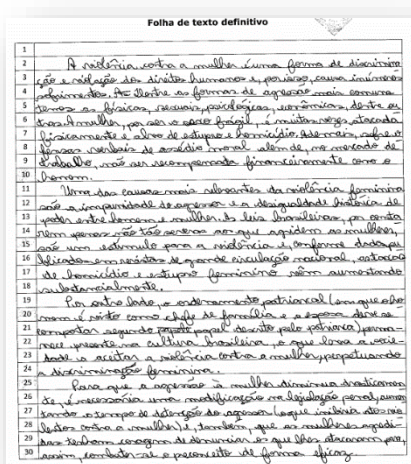 Folha de texto definitivo
1
2 A violência contra a mulher é uma forma de discrimina
3 ção e violação dos direitos humanos e, por isso, causa inúmeros
4 sofrimentos. Dentre as formas de agressão mais comuns
5 temos as físicas, sexuais, psicológicas, econômicas, dentre ou
6 tras. A mulher, por ser o sexo frágil, é muitas vezes atacada
7 fisicamente e alvo de estupro e homicídio. Ademais, sofre o
8 fensas verbais de assédio moral além de, no mercado de
9 trabalho, não ser recompensada financeiramente como o
10 homem.
11 Uma das causas mais relevantes da violência feminina
12 são a impunidade do agressor e a desigualdade histórica de
13 poder entre homem e mulher. As leis brasileiras, por conte
14 rem penas não tão severas aos que agridem as mulheres,
15 são um estímulo para a violência e, conforme dados pu
16 blicados em revistas de grande circulação nacional, as taxas
17 de homicídio e estupro feminino vêm aumentando
18 substancialmente.
19 Por outro lado, o ordenamento patriarcal (em que o ho
20 mem é visto como chefe de família e a esposa deve se
21 comportar segundo papel descrito pelo patriarca) perma
22 nece presente na cultura brasileira, o que leva a socie
23 dade a aceitar a violência contra a mulher, perpetuando
24 a discriminação feminina.
25 Para que a agressão à mulher diminua drasticamen
26 te, é necessária uma modificação na legislação penal, aumen
27 tando o tempo de detenção do agressor (o que inibiria atos vio
28 lentos contra a mulher) e, também, que as mulheres agredi
29 das tenham coragem de denunciar os que lhes atacaram para,
30 assim, combater-se o preconceito de forma eficaz.